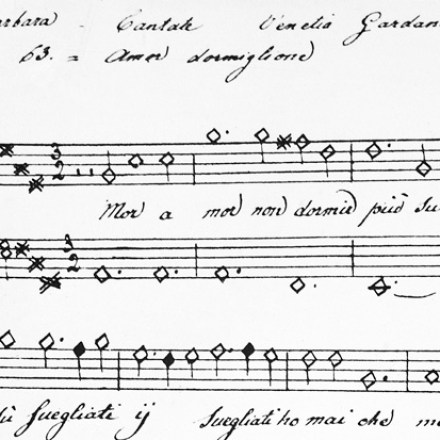 rbara - Cantate Venetia Gardan
63. = Amor dormiglione
3 2
Mor a mor non dormir più su
3 2
ù suegliati ij suegliati ho mai che m